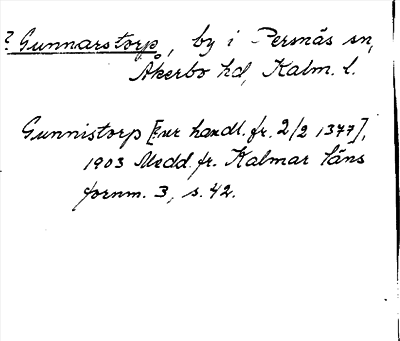 ? Gunnarstorp, by i Persnäs sn,
Åkerbo hd, Kalm. l.
Gunnistorp [Enl. handl. fr. 2/2 1377],
1903 Medd. fr. Kalmar läns
fornm. 3, s. 42.